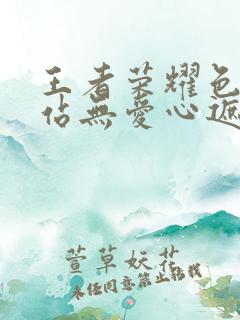 王者荣耀色
佔無愛心遮
萱草妖花
未经同意禁止转载